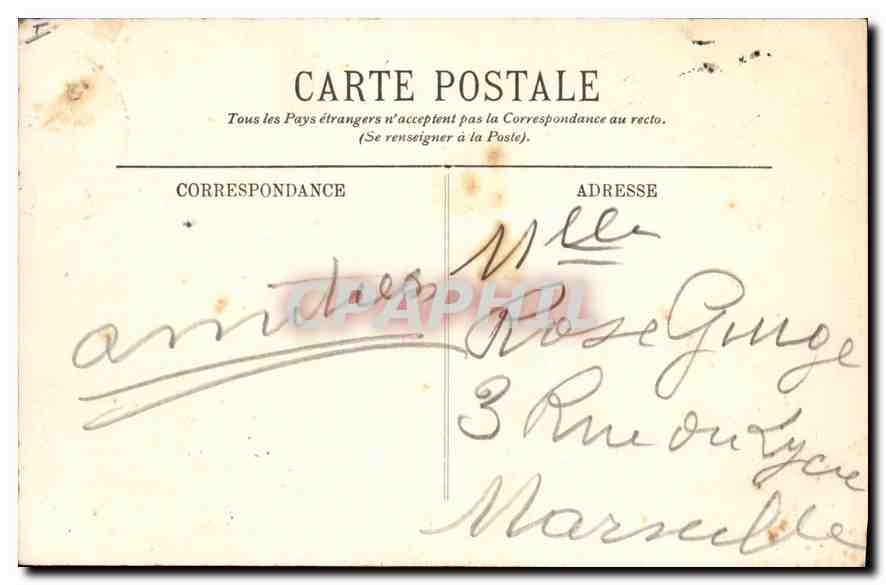 CARTE POSTALE
Tous les Pays étrangers n'acceptent pas la Correspondance au recto.
(Se renseigner à la Poste).
CORRESPONDANCE
ADRESSE
amitiés
Mlle
Rose
3 Rue du Lycée
Marseille
CPAPHIL